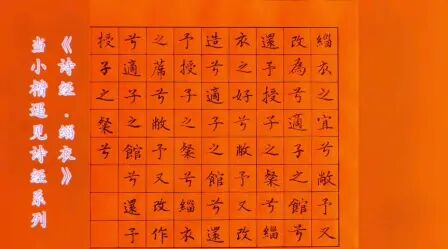 緇衣之宜兮敝予又
改為兮適子之館兮
還予授子之粲兮緇
衣之好兮敝予又改
造兮適子之館兮還
予授子之粲兮緇衣
之蓆兮敝予又改作
兮適子之館兮還予
授子之粲兮
《诗经·缁衣》
当小楷遇见诗经系列